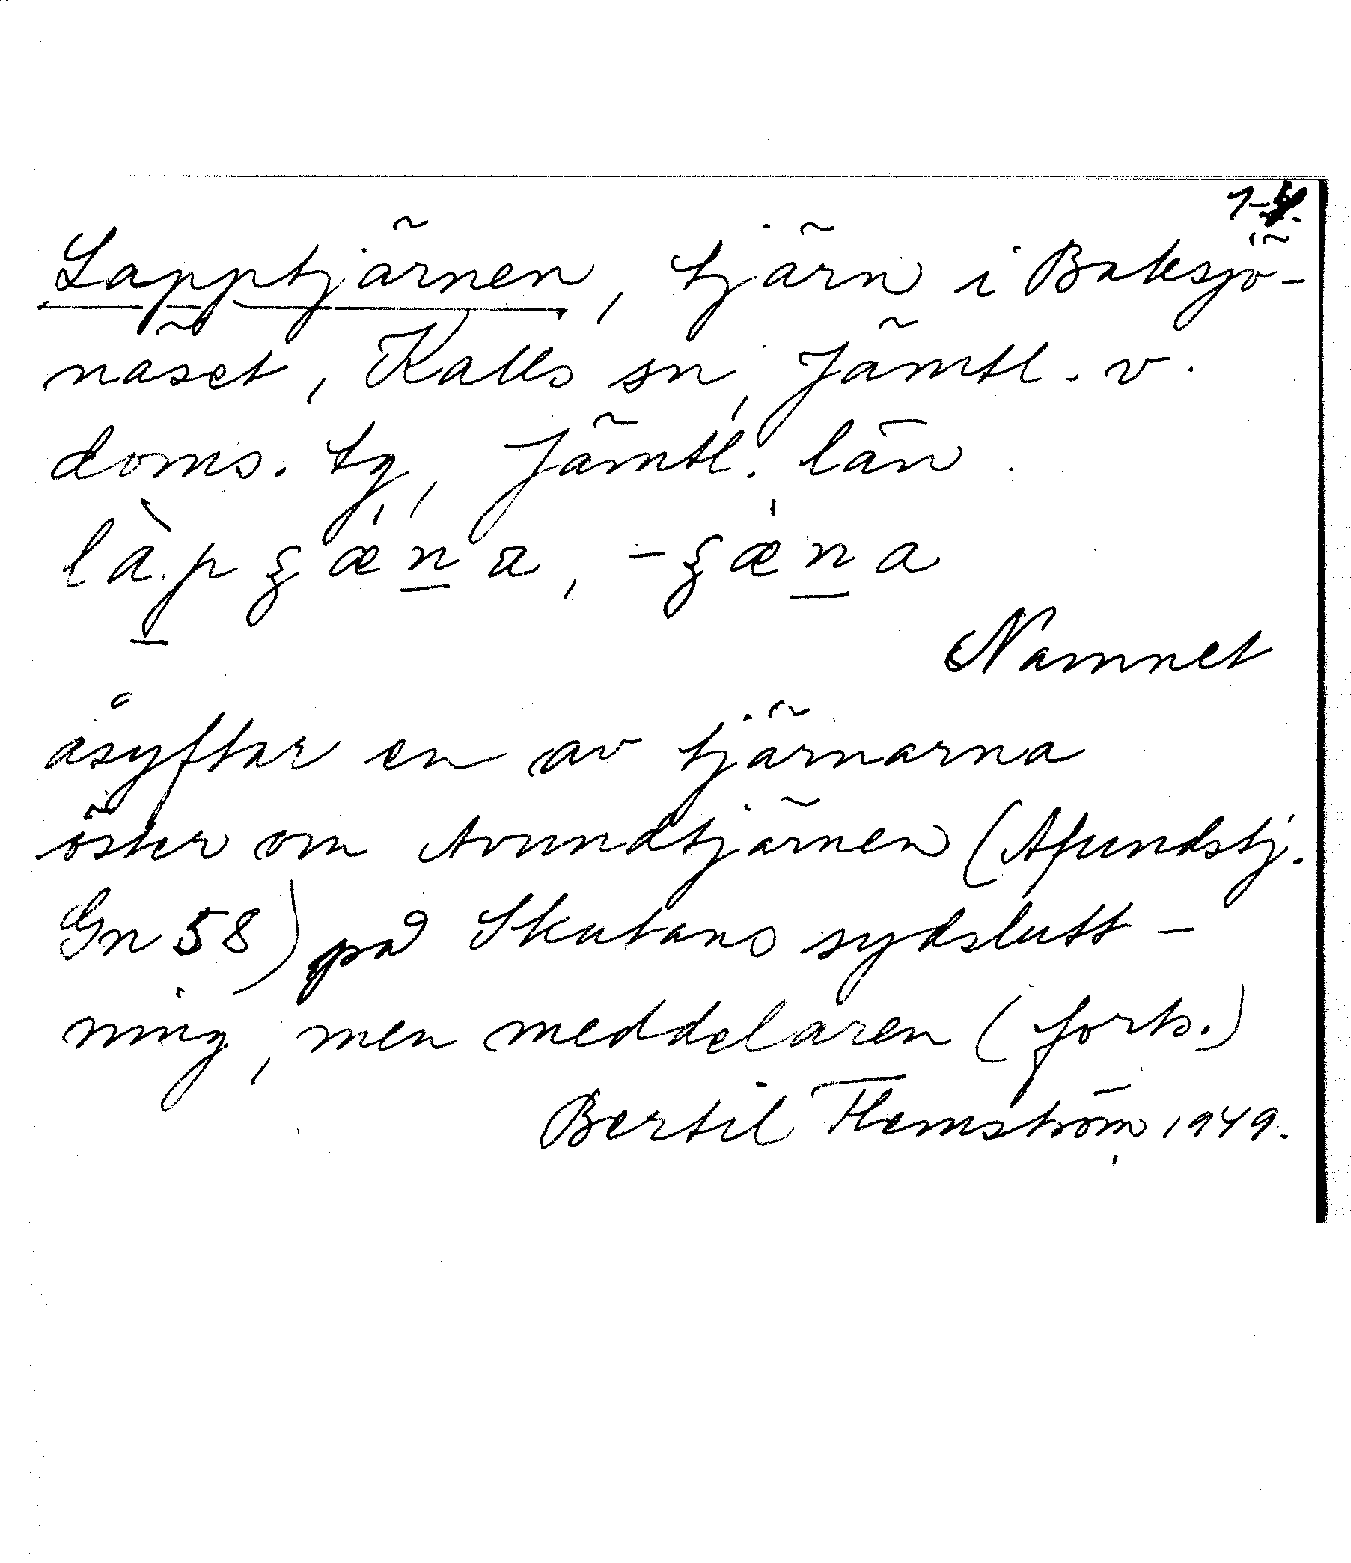 Lapptjärnen, tjärn i Baksjö-
näset, Kalls sn, Jämtl. v.
doms. tg, Jämtl. län
Namnet
åsyftar en av tjärnarna
öster om Avundtjärnen (Afundstj.
Gn 58) på Skutans sydslutt-
ning, men meddelaren (forts.)
Bertil Flemström 1949.